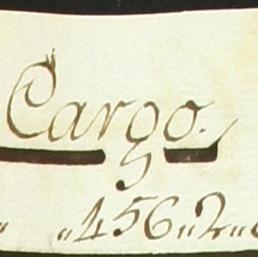 Cargo.
"456"2"